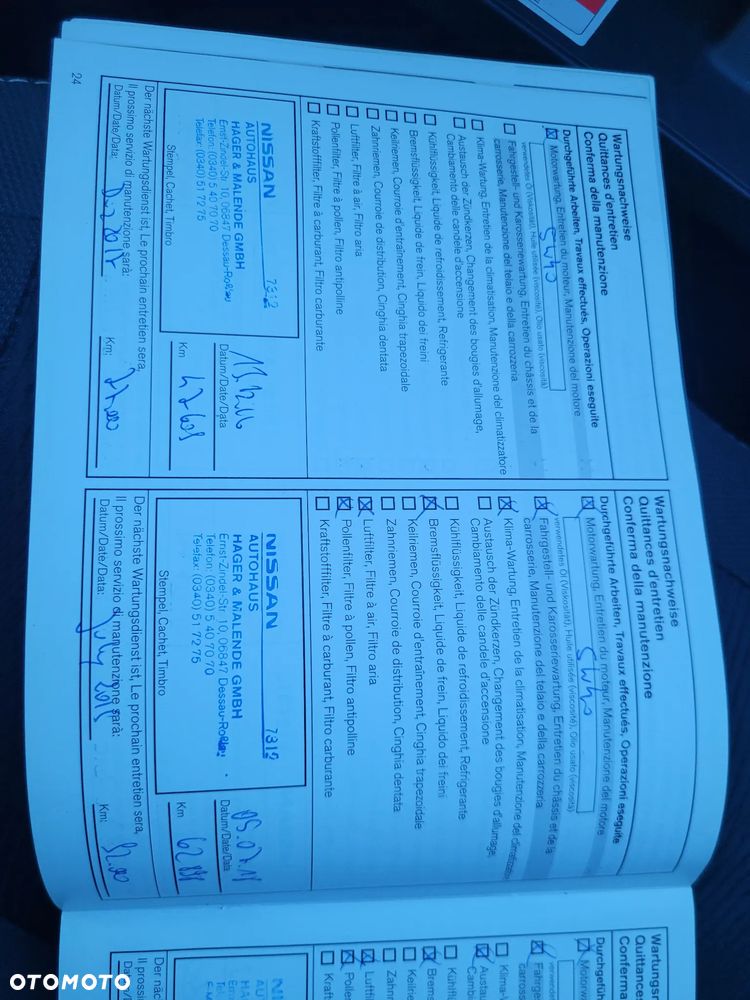 Wartungsnachweise
Quittances d'entretien
Conferma della manutenzione
Durchgeführte Arbeiten, Travaux effectués, Operazioni eseguite
Motorwartung, Entretien du moteur, Manutenzione del motore
verwendetes Öl (Viskosität), Huile utilisée (viscosité), Olio usato (viscosità)
5W40
Fahrgestell- und Karosseriewartung, Entretien du châssis et de la
carrosserie, Manutenzione del telaio e della carrozzeria
Klima-Wartung, Entretien de la climatisation, Manutenzione del climatizzatore
Austausch der Zündkerzen, Changement des bougies d'allumage,
Cambiamento delle candele d'accensione
Kühlflüssigkeit, Liquide de refroidissement, Refrigerante
Bremsflüssigkeit, Liquide de frein, Liquido dei freini
Keilriemen, Courroie d'entraînement, Cinghia trapezoidale
Zahnriemen, Courroie de distribution, Cinghia dentata
Luftfilter, Filtre à air, Filtro aria
Pollenfilter, Filtre à pollen, Filtro antipolline
Kraftstofffilter, Filtre à carburant, Filtro carburante
NISSAN
7312
AUTOHAUS
HAGER & MALENDE GMBH
Ernst-Zindel-Str. 10, 06847 Dessau-Roßlau
Telefon: (0340) 5 40 70 70
Telefax: (0340) 51 72 75
Stempel, Cachet, Timbro
Datum/Date/Data
Km
Der nächste Wartungsdienst ist, Le prochain entretien sera,
Il prossimo servizio di manutenzione sarà:
Datum/Date/Data:
Km:
24
Wartungsnachweise
Quittances d'entretien
Conferma della manutenzione
Durchgeführte Arbeiten, Travaux effectués, Operazioni eseguite
Motorwartung, Entretien du moteur, Manutenzione del motore
verwendetes Öl (Viskosität), Huile utilisée (viscosité), Olio usato (viscosità)
5W40
Fahrgestell- und Karosseriewartung, Entretien du châssis et de la
carrosserie, Manutenzione del telaio e della carrozzeria
Klima-Wartung, Entretien de la climatisation, Manutenzione del climatizzatore
Austausch der Zündkerzen, Changement des bougies d'allumage,
Cambiamento delle candele d'accensione
Kühlflüssigkeit, Liquide de refroidissement, Refrigerante
Bremsflüssigkeit, Liquide de frein, Liquido dei freini
Keilriemen, Courroie d'entraînement, Cinghia trapezoidale
Zahnriemen, Courroie de distribution, Cinghia dentata
Luftfilter, Filtre à air, Filtro aria
Pollenfilter, Filtre à pollen, Filtro antipolline
Kraftstofffilter, Filtre à carburant, Filtro carburante
NISSAN
7312
AUTOHAUS
HAGER & MALENDE GMBH
Ernst-Zindel-Str. 10, 06847 Dessau-Roßlau
Telefon: (0340) 5 40 70 70
Telefax: (0340) 51 72 75
Stempel, Cachet, Timbro
Datum/Date/Data
Km
Der nächste Wartungsdienst ist, Le prochain entretien sera,
Il prossimo servizio di manutenzione sarà:
Datum/Date/Data:
Km:
Wartungsna
Quittances
Conferma
Durchgefü
Motorw
verwende
Fahrge
carross
Klima-
Austau
Camb
Kühlf
Brems
Keilrie
Zahn
Luftfi
Polle
Kraft
Der nä
Il pros
OTOMOTO